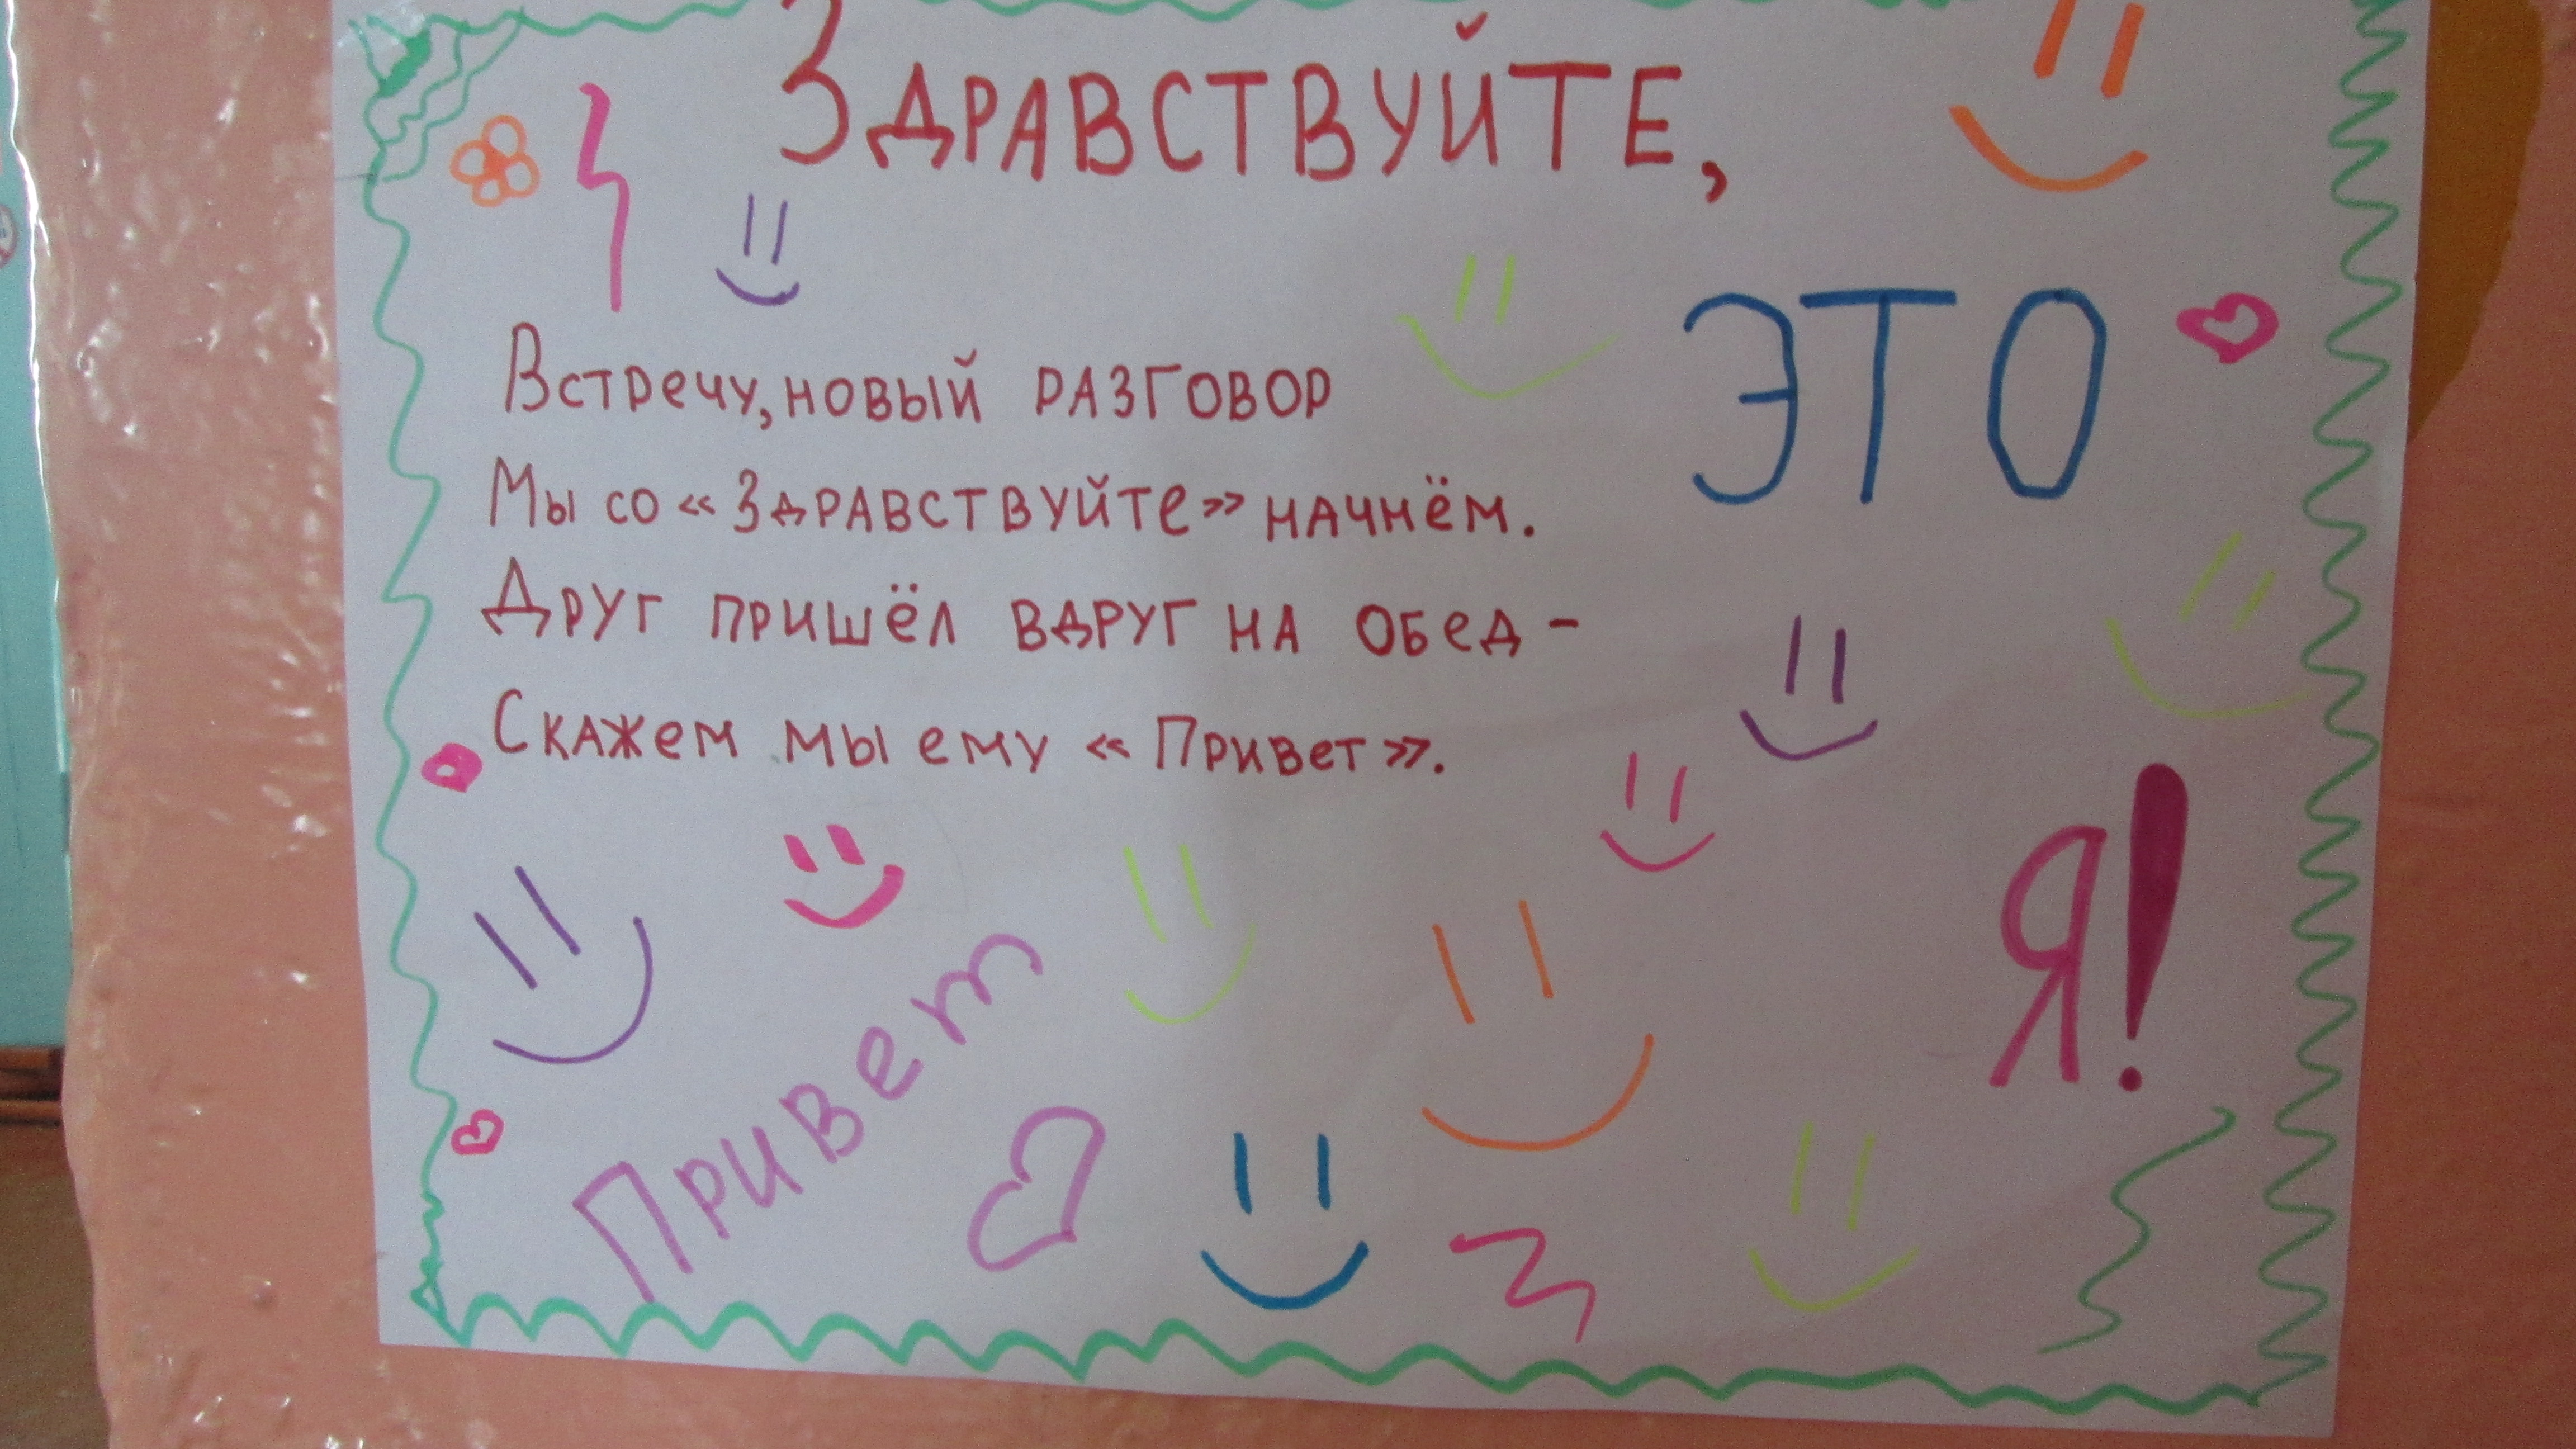 Здравствуйте,
ЭТО
Я!
Встречу, новый разговор
Мы со «Здравствуйте» начнём.
Друг пришёл вдруг на обед -
Скажем мы ему «Привет».
Привет